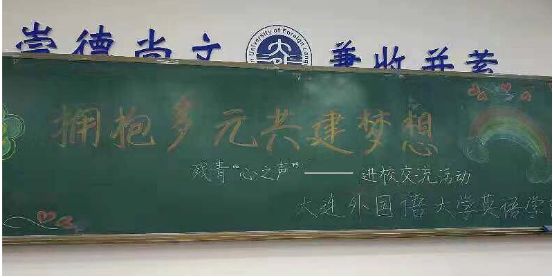 崇德尚文 兼收并蓄
University of Foreign
拥抱多元共建梦想
残青“心之声”——进校交流活动
大连外国语大学英语学